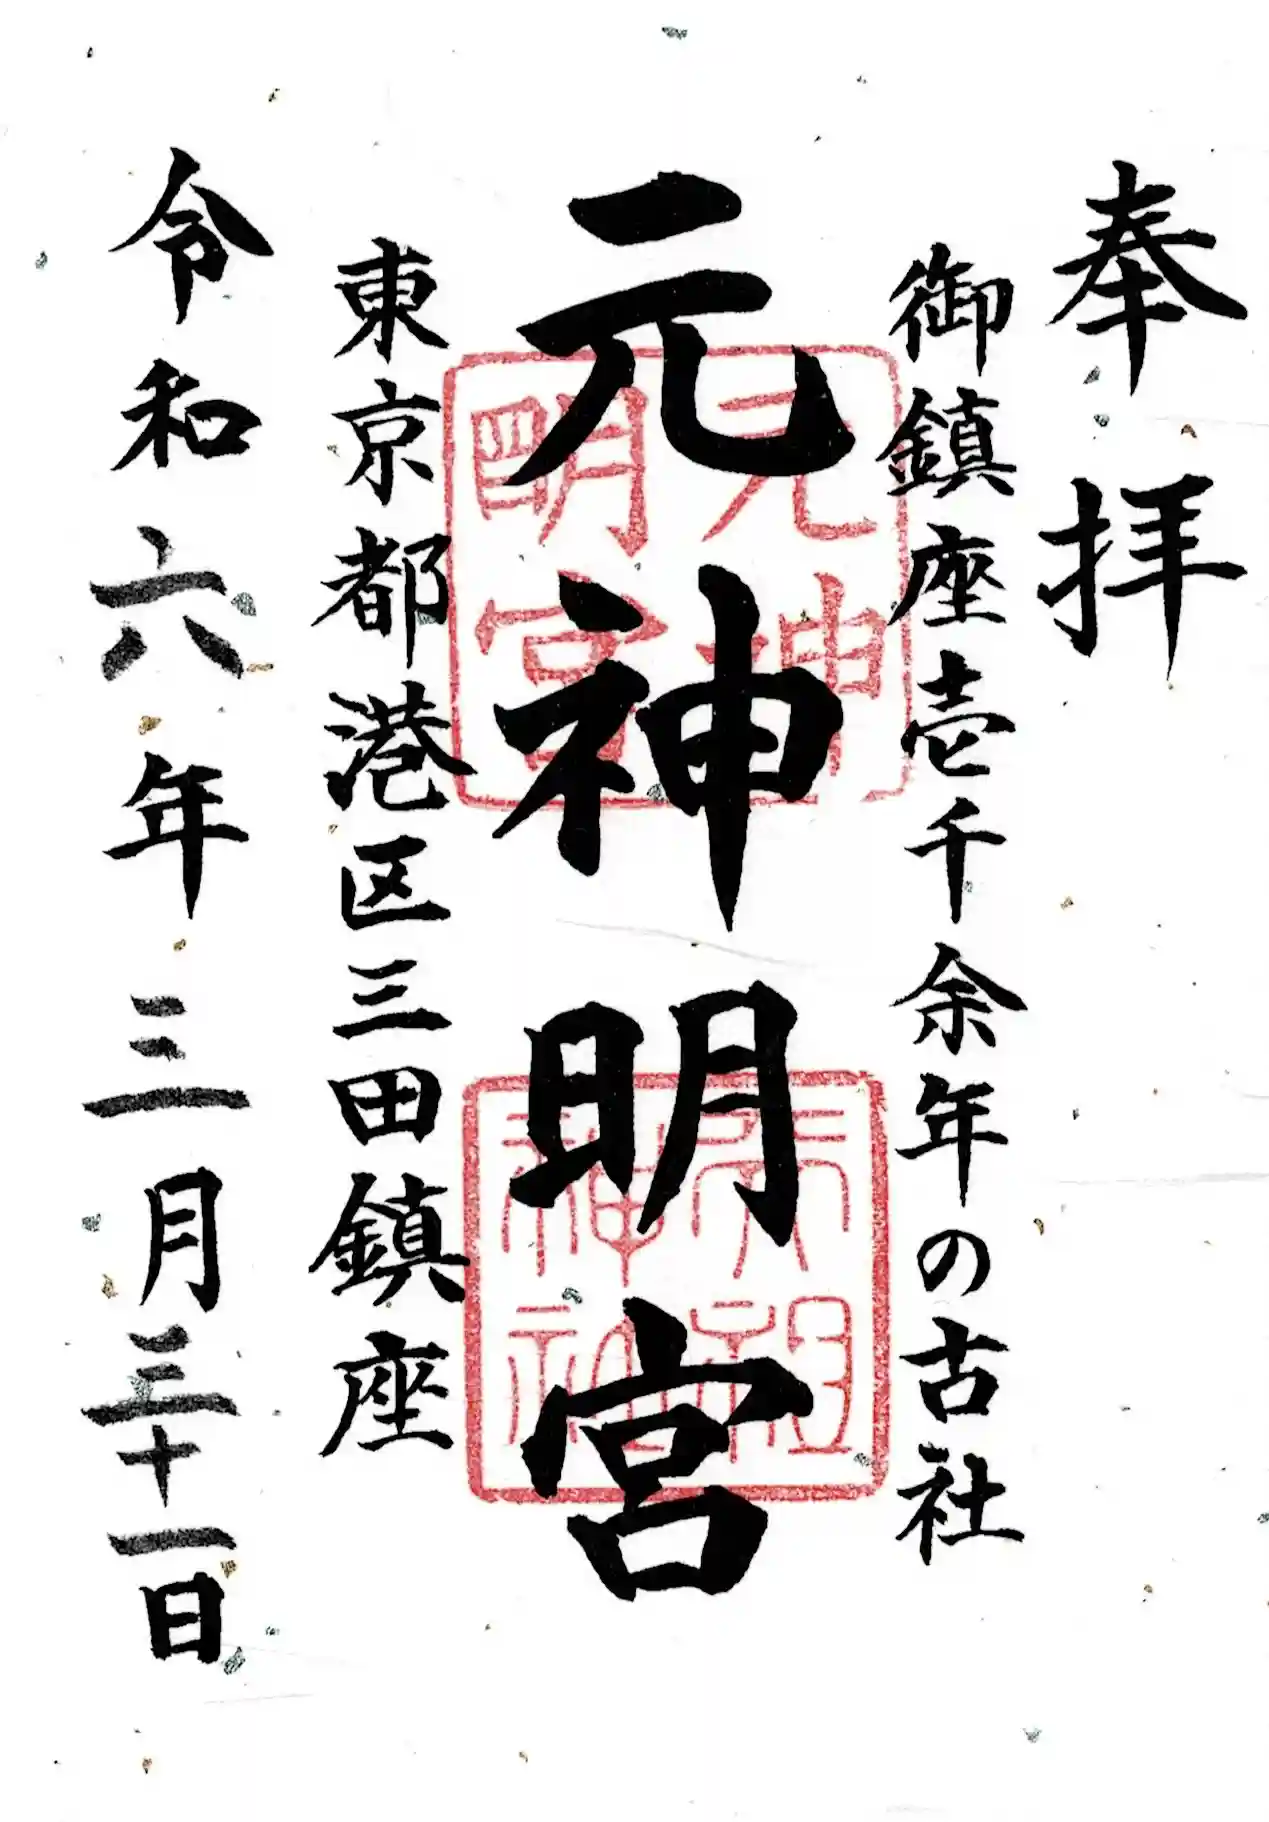 奉拝
御鎮座壱千余年の古社
元神明宮
東京都港区三田鎮座
令和六年三月三十一日
元神
明宮